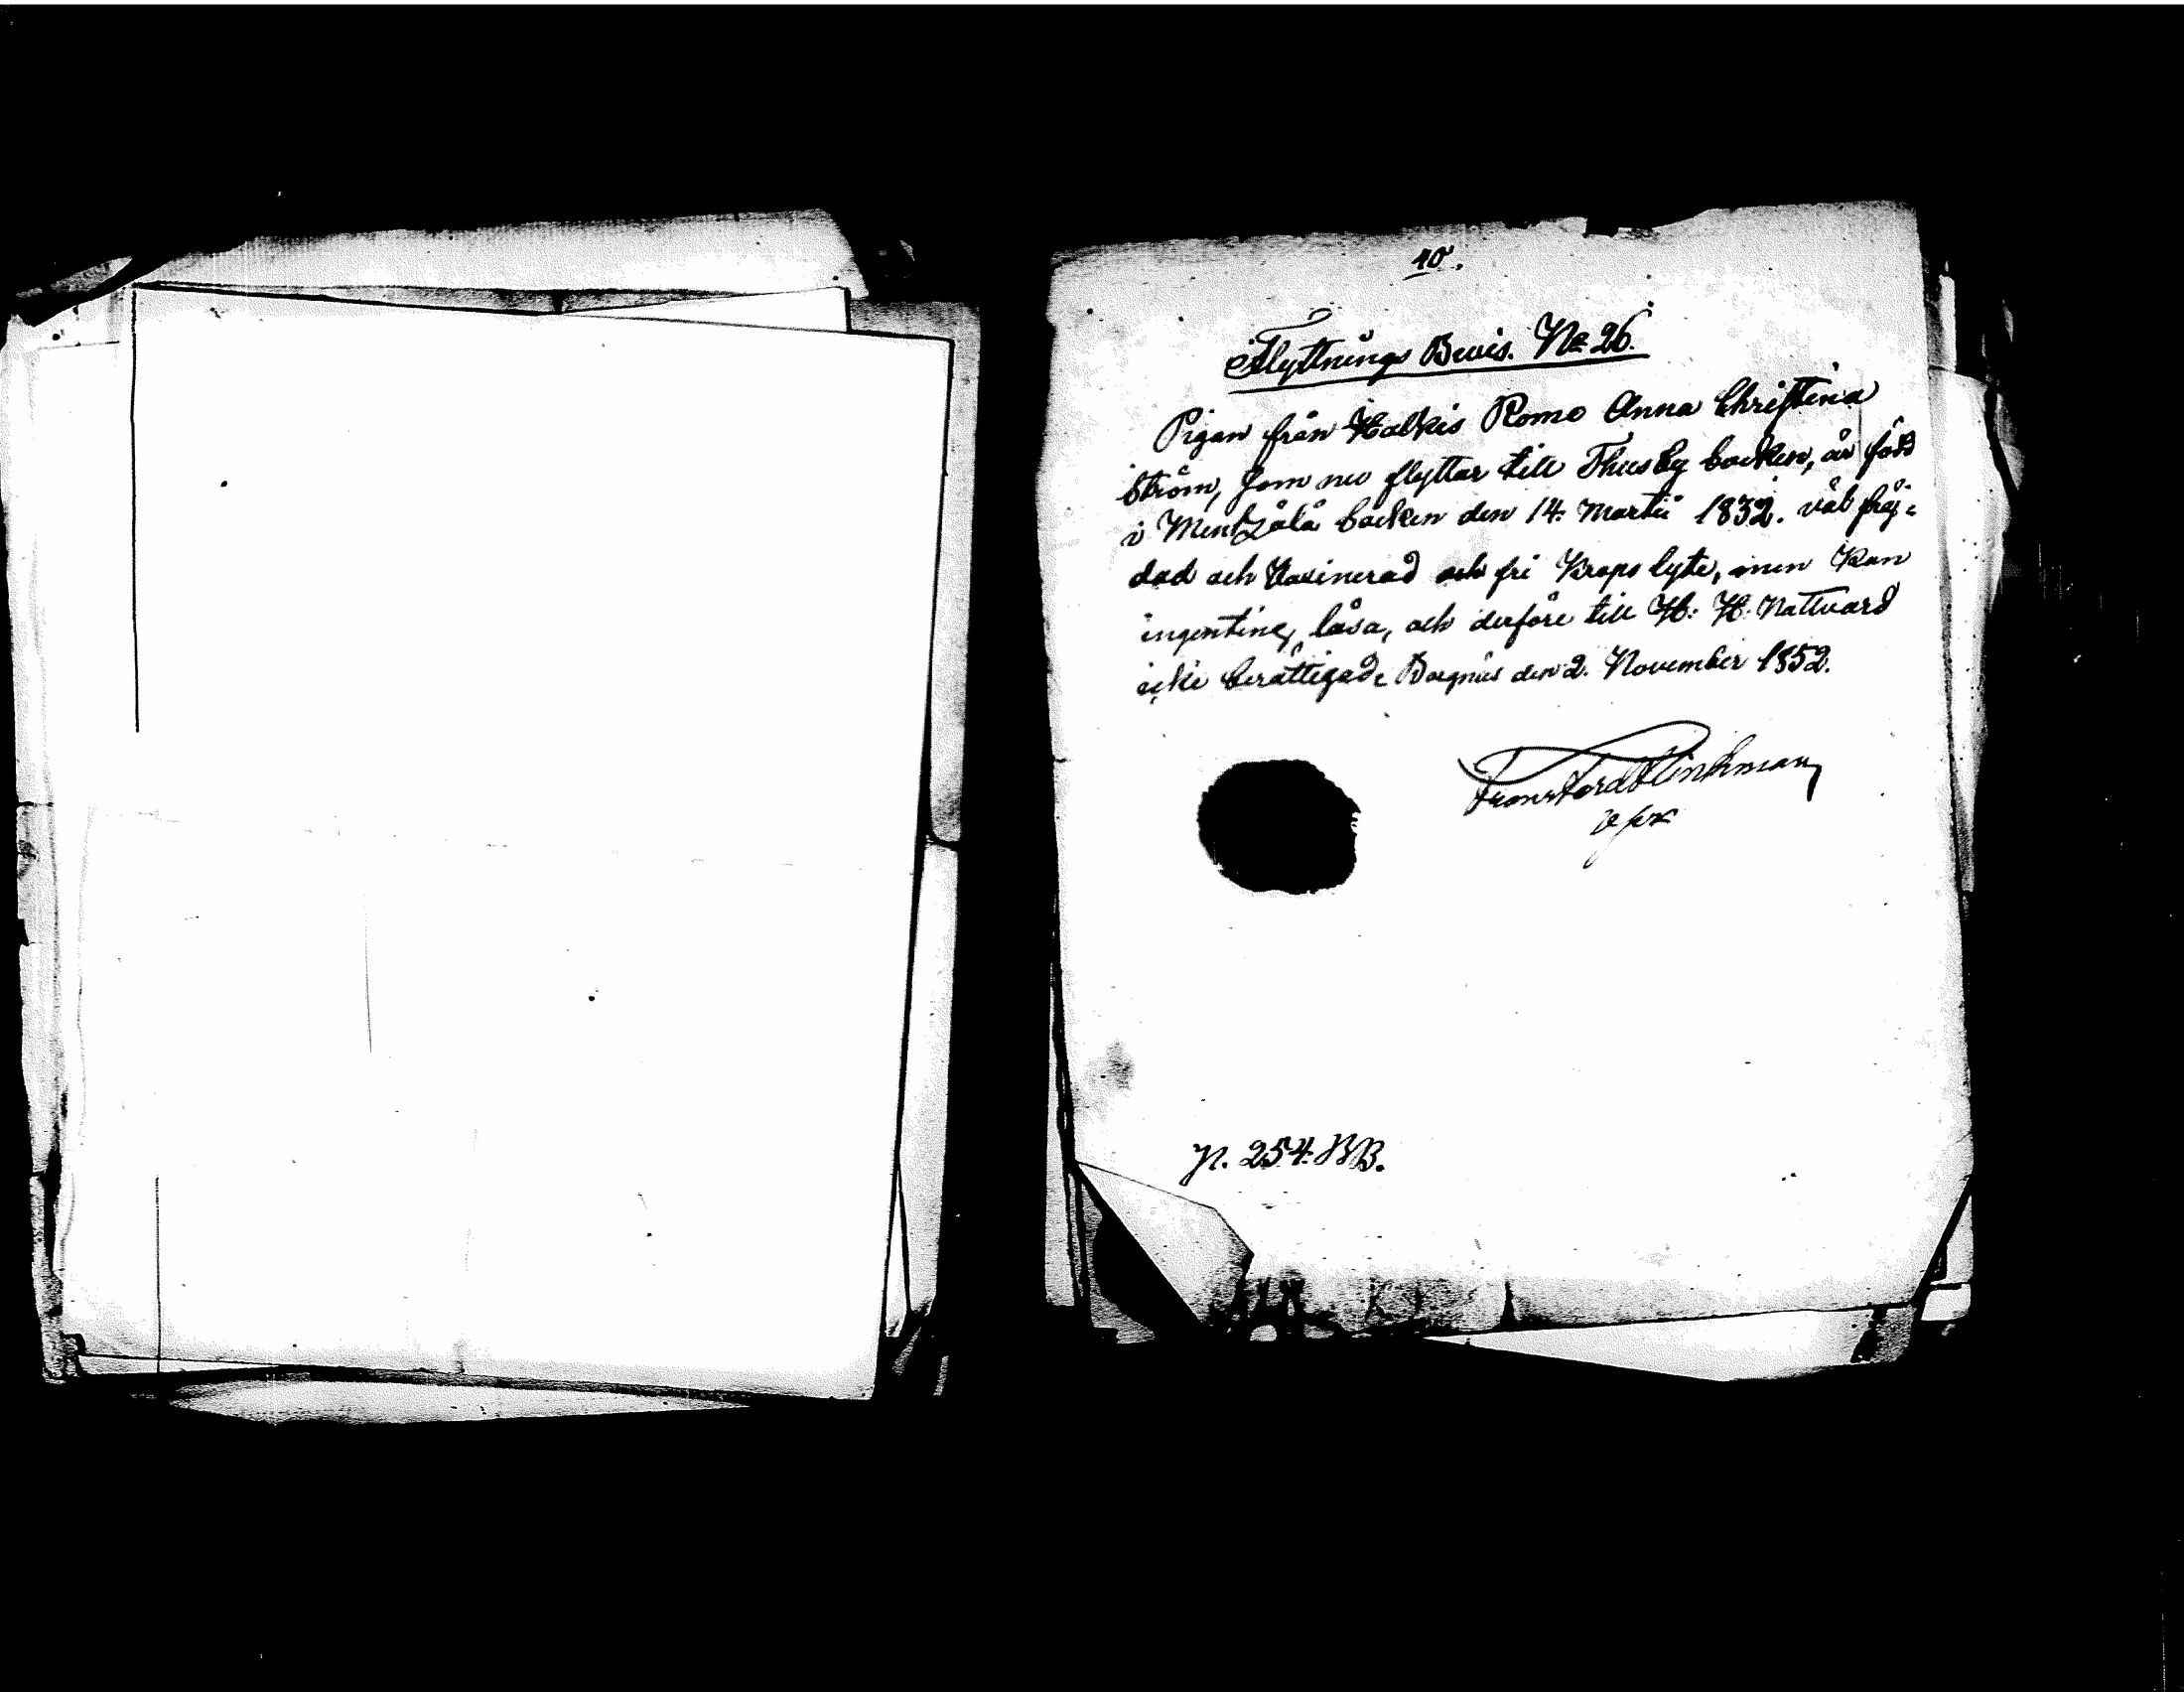 40.
Flyttnings Bevis. No 26.
Pigan från Halkis Romo Anna Christina
Ström, som nu flyttar till Thusby backen, är född
i Mentzälä backen den 14. Martii 1832. väl fräj=
dad och Vaxinerad och fri Kropslyte, men kan
ingenting läsa, och derföre till H: H. Nattvard
icke berättigad. den 2. November 1852.
Frans Ferd Klinkman
p. 254. BB.